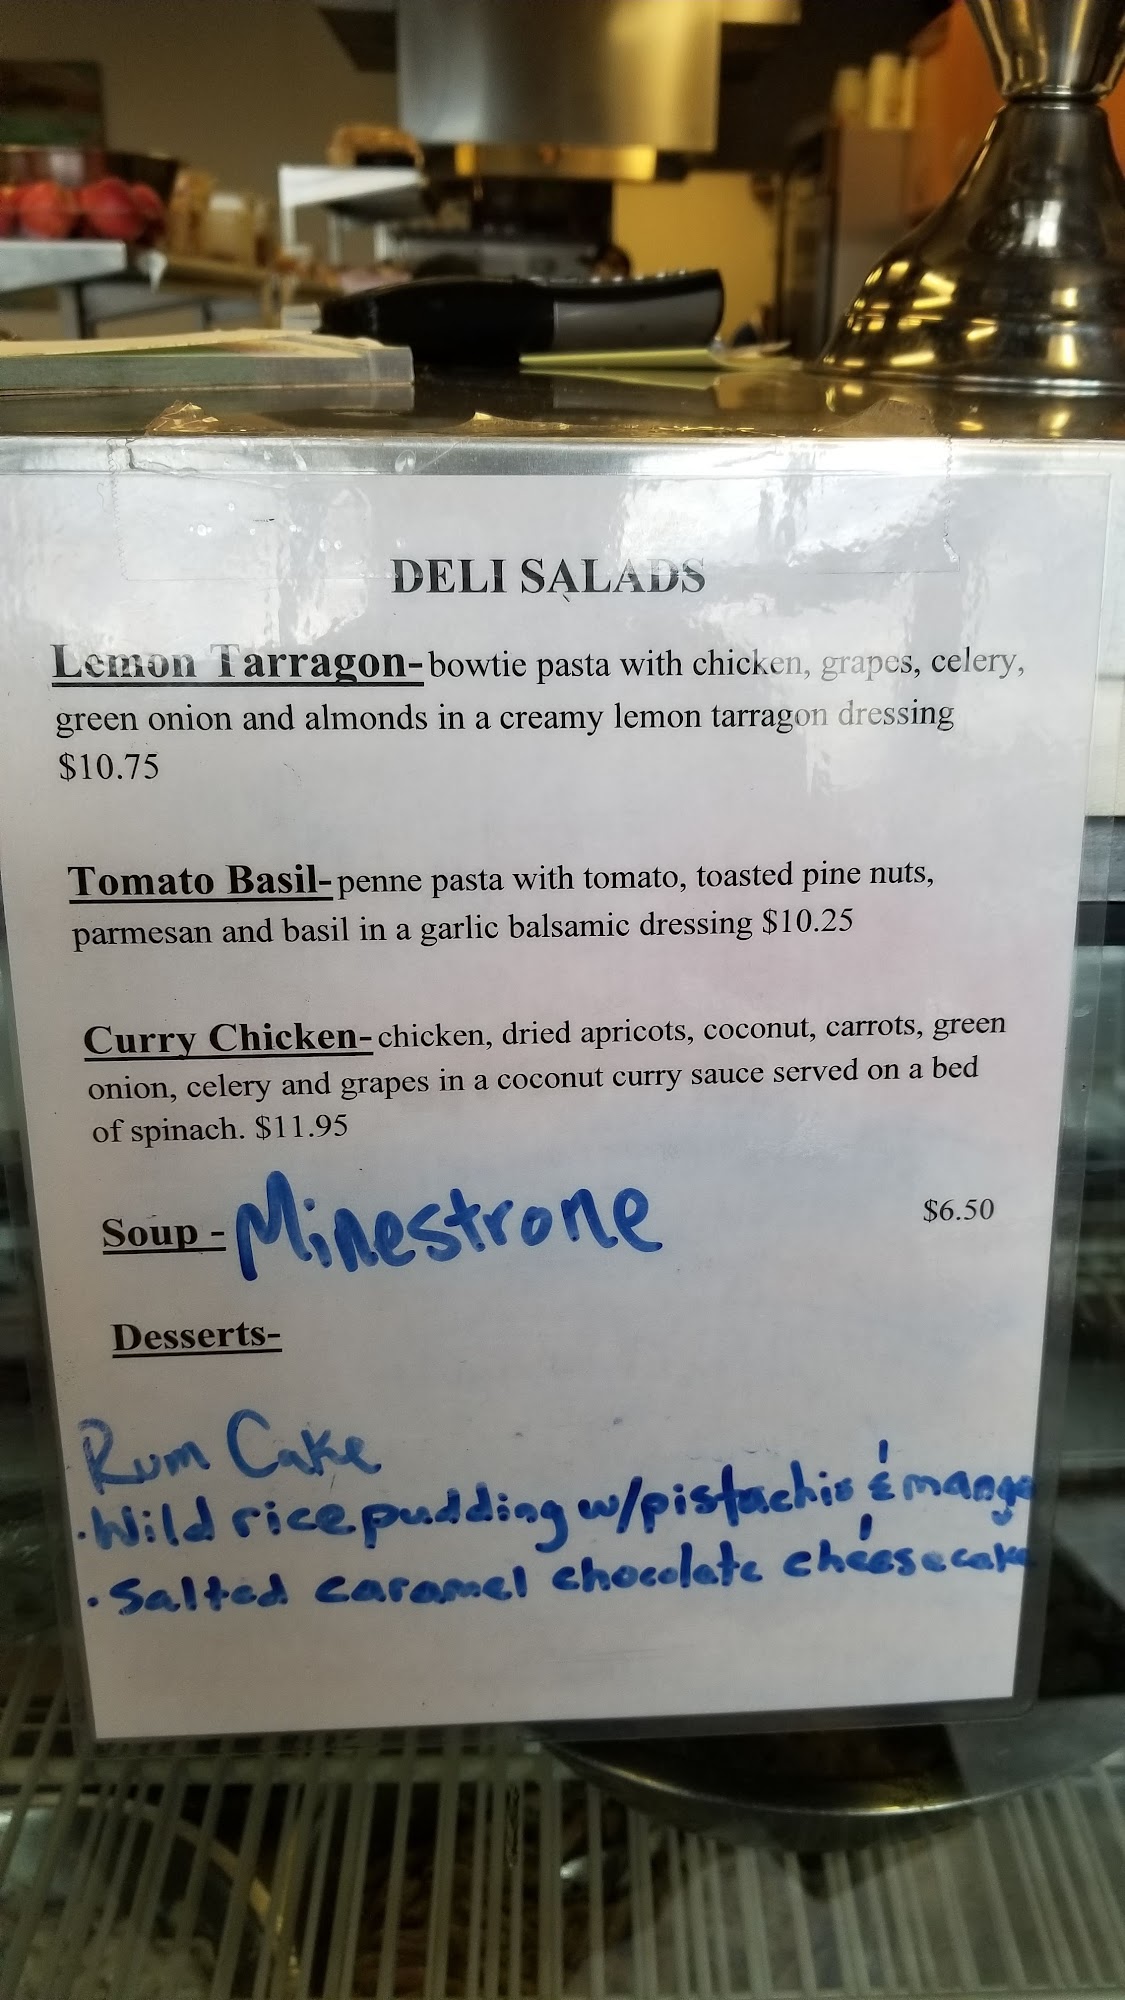 DELI SALADS
Lemon Tarragon- bowtie pasta with chicken, grapes, celery,
green onion and almonds in a creamy lemon tarragon dressing
$10.75
Tomato Basil- penne pasta with tomato, toasted pine nuts,
parmesan and basil in a garlic balsamic dressing $10.25
Curry Chicken- chicken, dried apricots, coconut, carrots, green
onion, celery and grapes in a coconut curry sauce served on a bed
of spinach. $11.95
Soup - Minestrone $6.50
Desserts-
Rum Cake
· Wild rice pudding w/pistachio & mango
· Salted caramel chocolate cheesecake